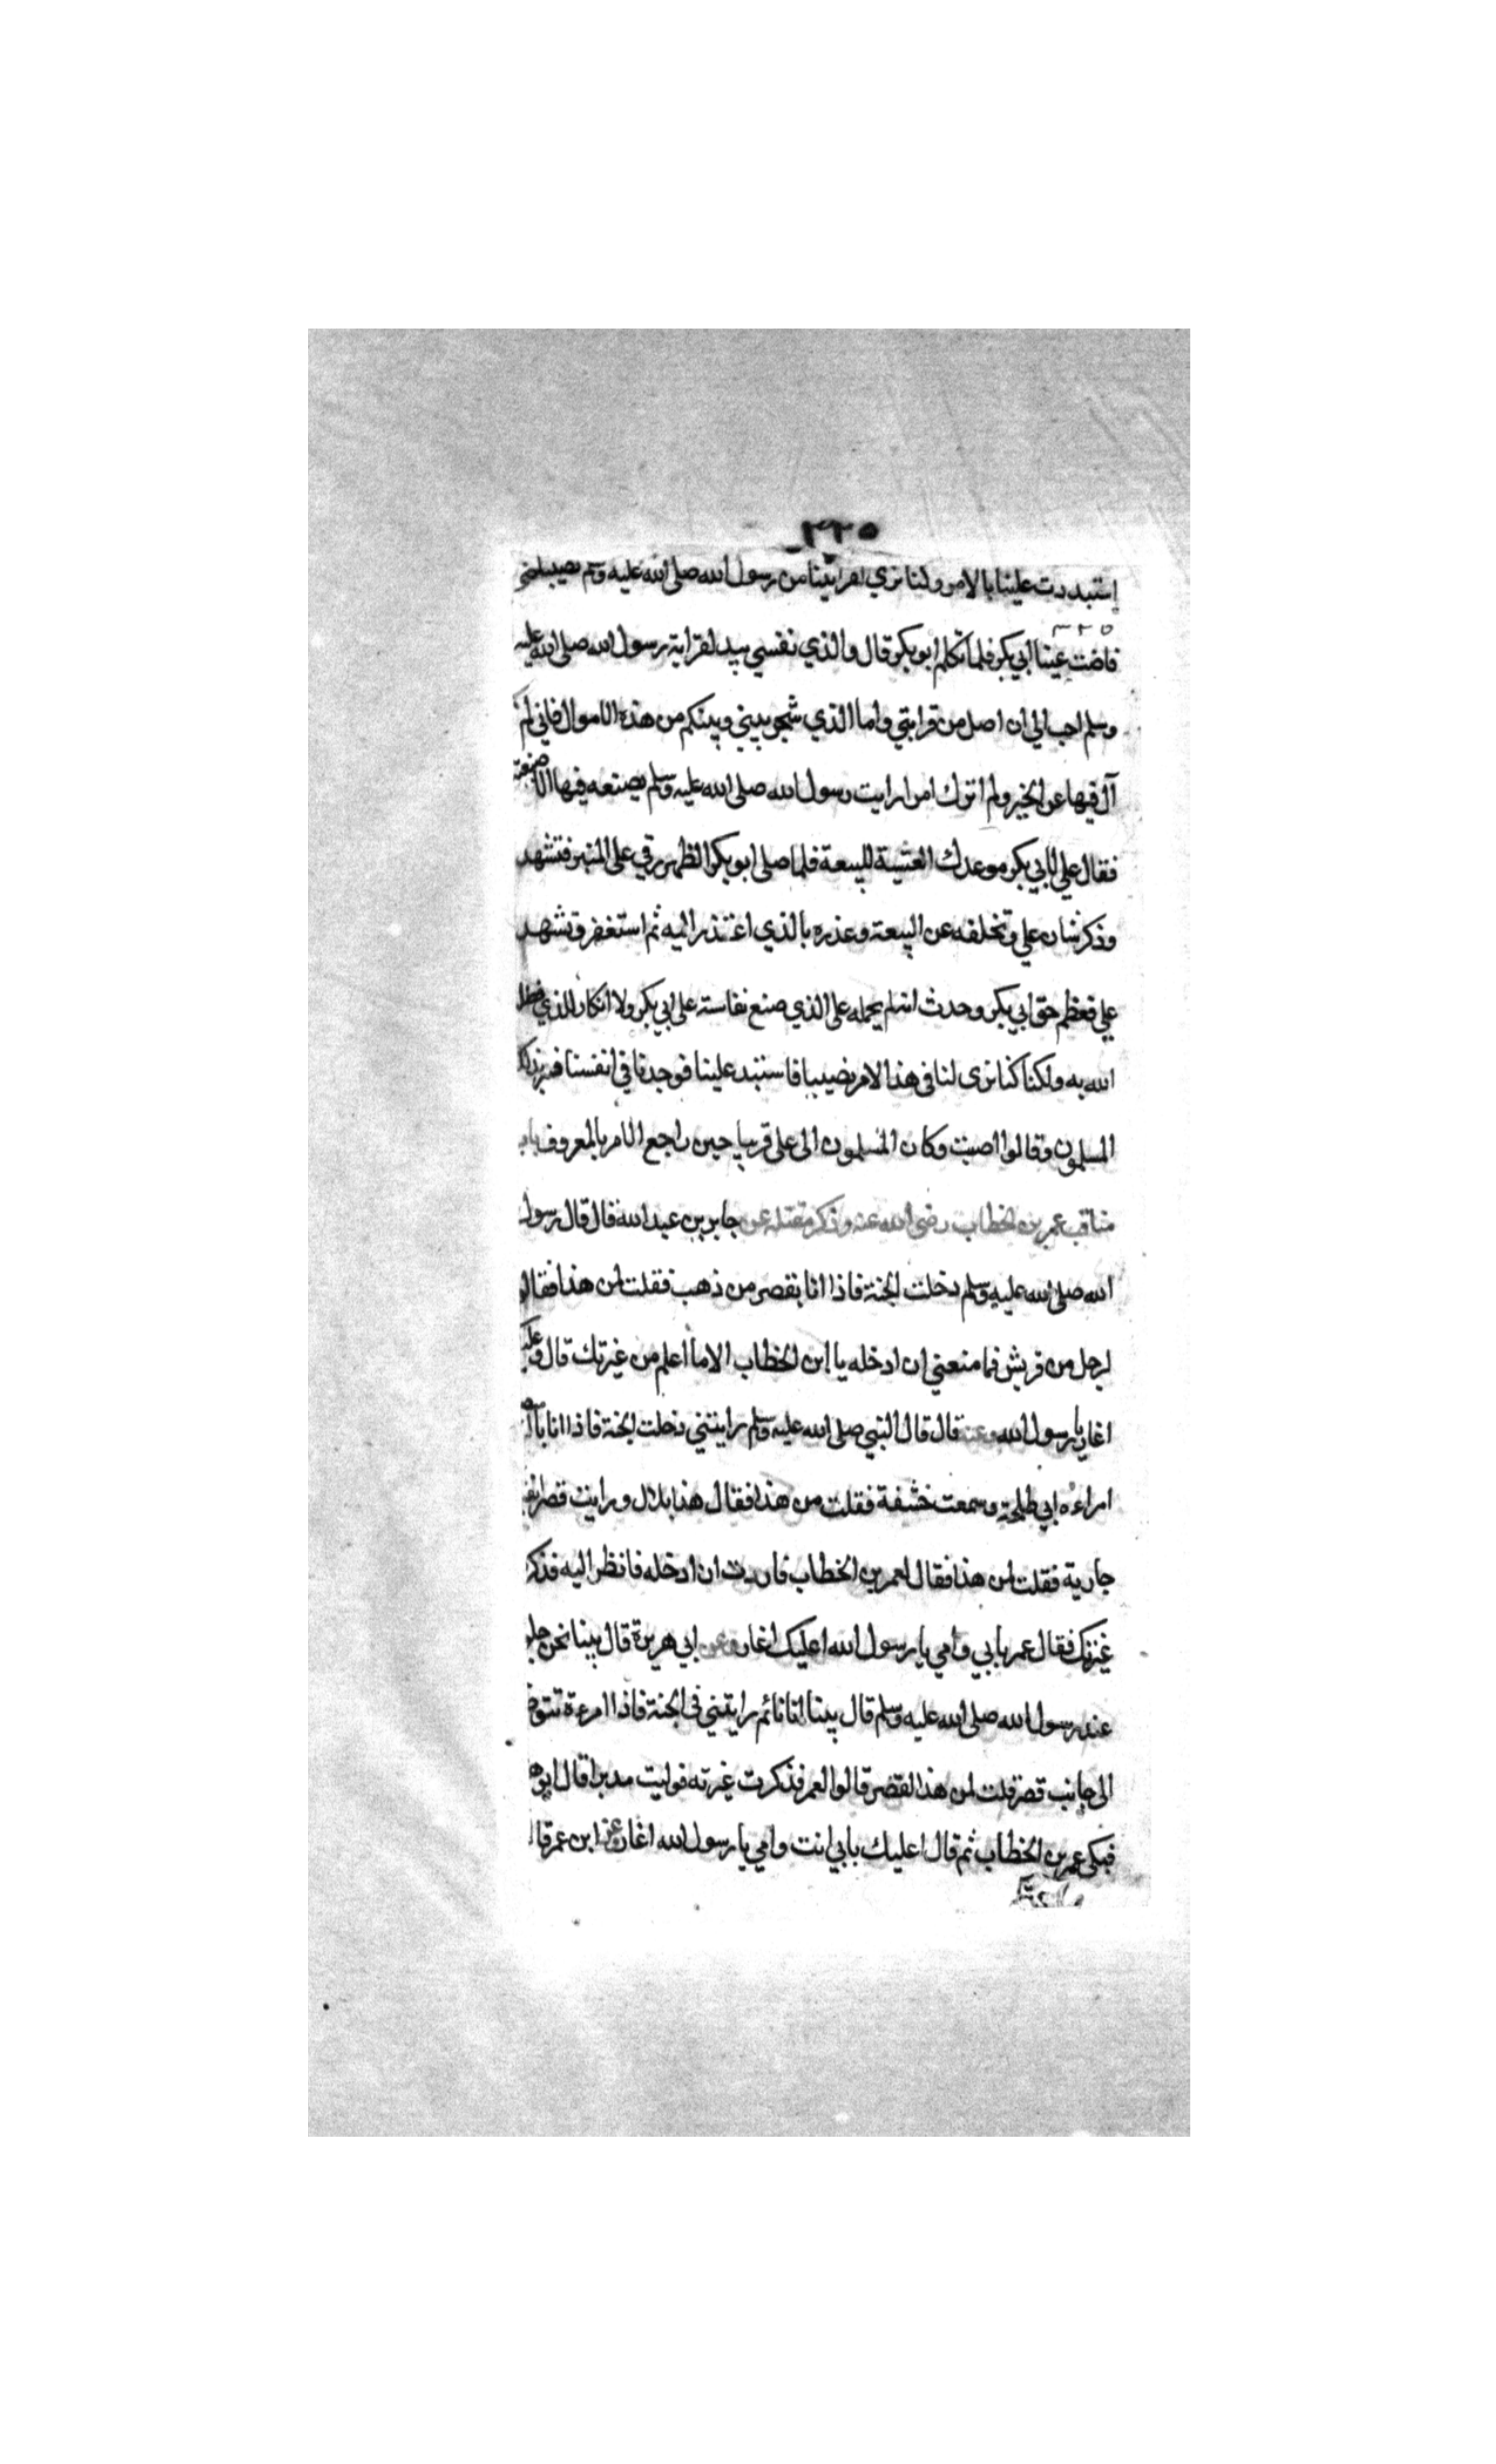 ٣٢٥
إستبددت علينا بالامر وكنا نري لقرابتنا من رسول الله صلى الله عليه وسلم نصيبا حتى
٣٢٥
فاضت عينا ابي بكر فلما تكلم ابو بكر قال والذي نفسي بيده لقرابة رسول الله صلى الله عليه
وسلم احب الي ان اصل من قرابتي واما الذي شجر بيني وبينكم من هذه الاموال فاني لم
آل فيها عن الخير ولم اترك امرا رايت رسول الله صلى الله عليه وسلم يصنعه فيها الا صنعته
فقال علي لابي بكر موعدك العشية للبيعة فلما صلى ابو بكر الظهر رقي على المنبر فتشهد
وذكر شان علي وتخلفه عن البيعة وعذره بالذي اعتذر اليه ثم استغفر وتشهد
علي فعظم حق ابي بكر وحدث انه لم يحمله على الذي صنع نفاسة على ابي بكر ولا انكار للذي فضل
الله به ولكنا كنا نرى لنا في هذا الامر نصيبا فاستبد علينا فوجدنا في انفسنا فسر بذلك
المسلمون وقالوا اصبت وكان المسلمون الى علي قريبا حين راجع الامر بالمعروف باب
مناقب عمر بن الخطاب رضي الله عنه وذكر مقتله عن جابر بن عبد الله قال قال رسول
الله صلى الله عليه وسلم دخلت الجنة فاذا انا بقصر من ذهب فقلت لمن هذا فقالو
لرجل من قريش فما منعني ان ادخله يا ابن الخطاب الا ما اعلم من غيرتك قال وعليك
اغار يا رسول الله وعنه قال قال النبي صلى الله عليه وسلم رايتني دخلت الجنة فاذا انا
امراءه ابي طلحة وسمعت خشفة فقلت من هذا فقال هذا بلال ورايت قصرا
جارية فقلت لمن هذا فقال لعمر بن الخطاب فاردت ان ادخله فانظر اليه فذكر
غيرتك فقال عمر بابي وامي يا رسول الله اعليك اغار وعن ابي هريرة قال بينا نحن
عند رسول الله صلى الله عليه وسلم قال بينا انا نائم رايتني في الجنة فاذا امرءة تتوض
الى جانب قصر قلت لمن هذا القصر قالوا لعمر فذكرت غيرته فوليت مدبرا قال ابو ه
فبكى عمر بن الخطاب ثم قال اعليك بابي انت وامي يا رسول الله اغار وعن ابن عمر قال